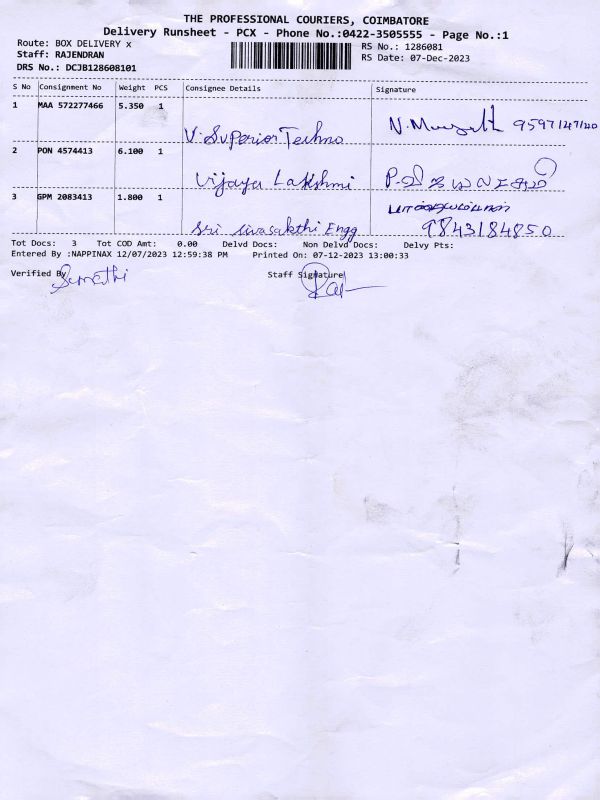 THE PROFESSIONAL COURIERS, COIMBATORE
Delivery Runsheet - PCX - Phone No.:0422-3505555 - Page No.:1
Route: BOX DELIVERY x RS No.: 1286081
Staff: RAJENDRAN RS Date: 07-Dec-2023
DRS No.: DCJB128608101
S No Consignment No Weight PCS Consignee Details Signature
1 MAA 572277466 5.350 1
V. Superior Techno N.
2 PON 4574413 6.100 1
Vijaya Lakshmi
3 GPM 2083413 1.800 1
Sri sivasakthi Engg 9843184850
Tot Docs: 3 Tot COD Amt: 0.00 Delvd Docs: Non Delvd Docs: Delvy Pts:
Entered By :NAPPINAX 12/07/2023 12:59:38 PM Printed On: 07-12-2023 13:00:33
Verified By Sumathi Staff Signature